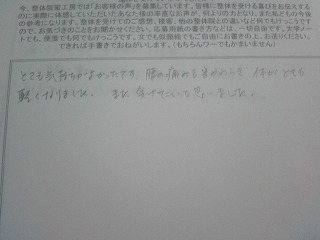 今、整体院省工房では「お客様の声」を募集しています。整体を受ける喜びをお伝えするの
に実際に体感していただいたあなた様の率直なお声が、何よりの力となり、また私どもの今後
の参考になります。整体を受けてのご感想、接客、他の整体院との違いなど何でもけっこうです
ので、お気づきのことをお聞かせください。応募用紙の書き方などは、一切自由です。大学ノー
トでも、便箋でも何でもけっこうです。文でも似顔絵でもご自由にお書きの上、お送りください。
できれば手書きでおねがいします。(もちろんワープロでもかまいません)
とても気持ちがよかったです。腰の痛みも やわらぎ 体が とても
軽くなりました。 また 受けたいと思いました。